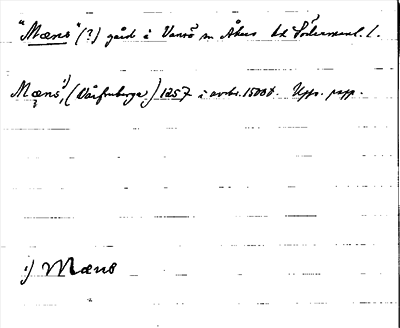 "Mæns" (?) gård i Vansö sn Åkers hd Södermanl. l.
Mæns¹⁾, (Vårfruberga) 1257 i avskr. 1500 t. Upps. papp.
¹⁾ Mæns